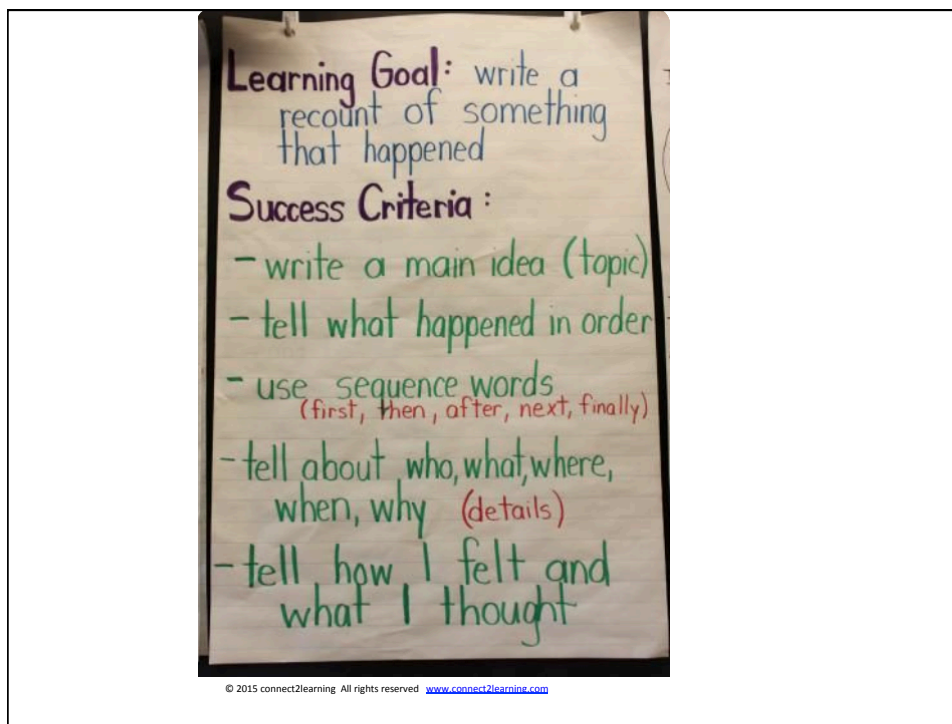 Learning Goal: write a
recount of something
that happened
Success Criteria:
- write a main idea (topic)
- tell what happened in order
- use sequence words
(first, then, after, next, finally)
- tell about who, what, where,
when, why (details)
- tell how I felt and
what I thought
© 2015 connect2learning All rights reserved www.connect2learning.com